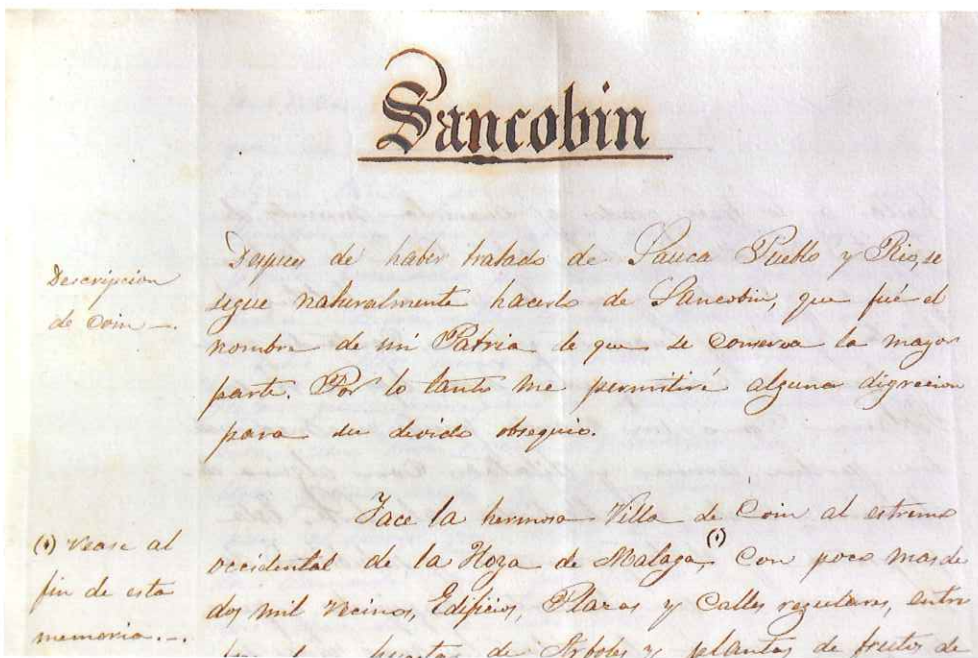 Sancobin
Descripcion
de Coin —.
Despues de haber tratado de Sauca Pueblo y Rio, se
sigue naturalmente hacerlo de Sancobin, que fué el
nombre de mi Patria de que se conserva la mayor
parte. Por lo tanto me permitiré alguna digrecion
para su devido obsequio.
(•) Vease al
fin de esta
memoria.—.
Jace la hermosa Villa de Coin al estremo
occidental de la Hoya de Malaga, (•) Con poco mas de
dos mil vecinos, Edificios, Plazas y Calles regulares, entre
huertas de Arboles y plantas de frutos de